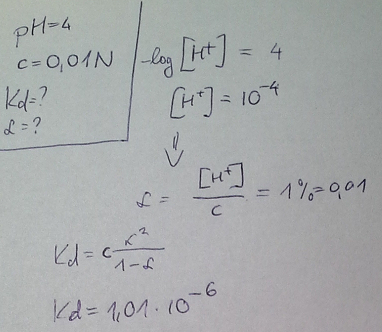 pH=4
c=0,01N
Kd=?
α=?
-log [H⁺] = 4
[H⁺] = 10⁻⁴
⇓
α = [H⁺]/c = 1% = 0,01
Kd = c α²/1-α
Kd = 1,01 · 10⁻⁶